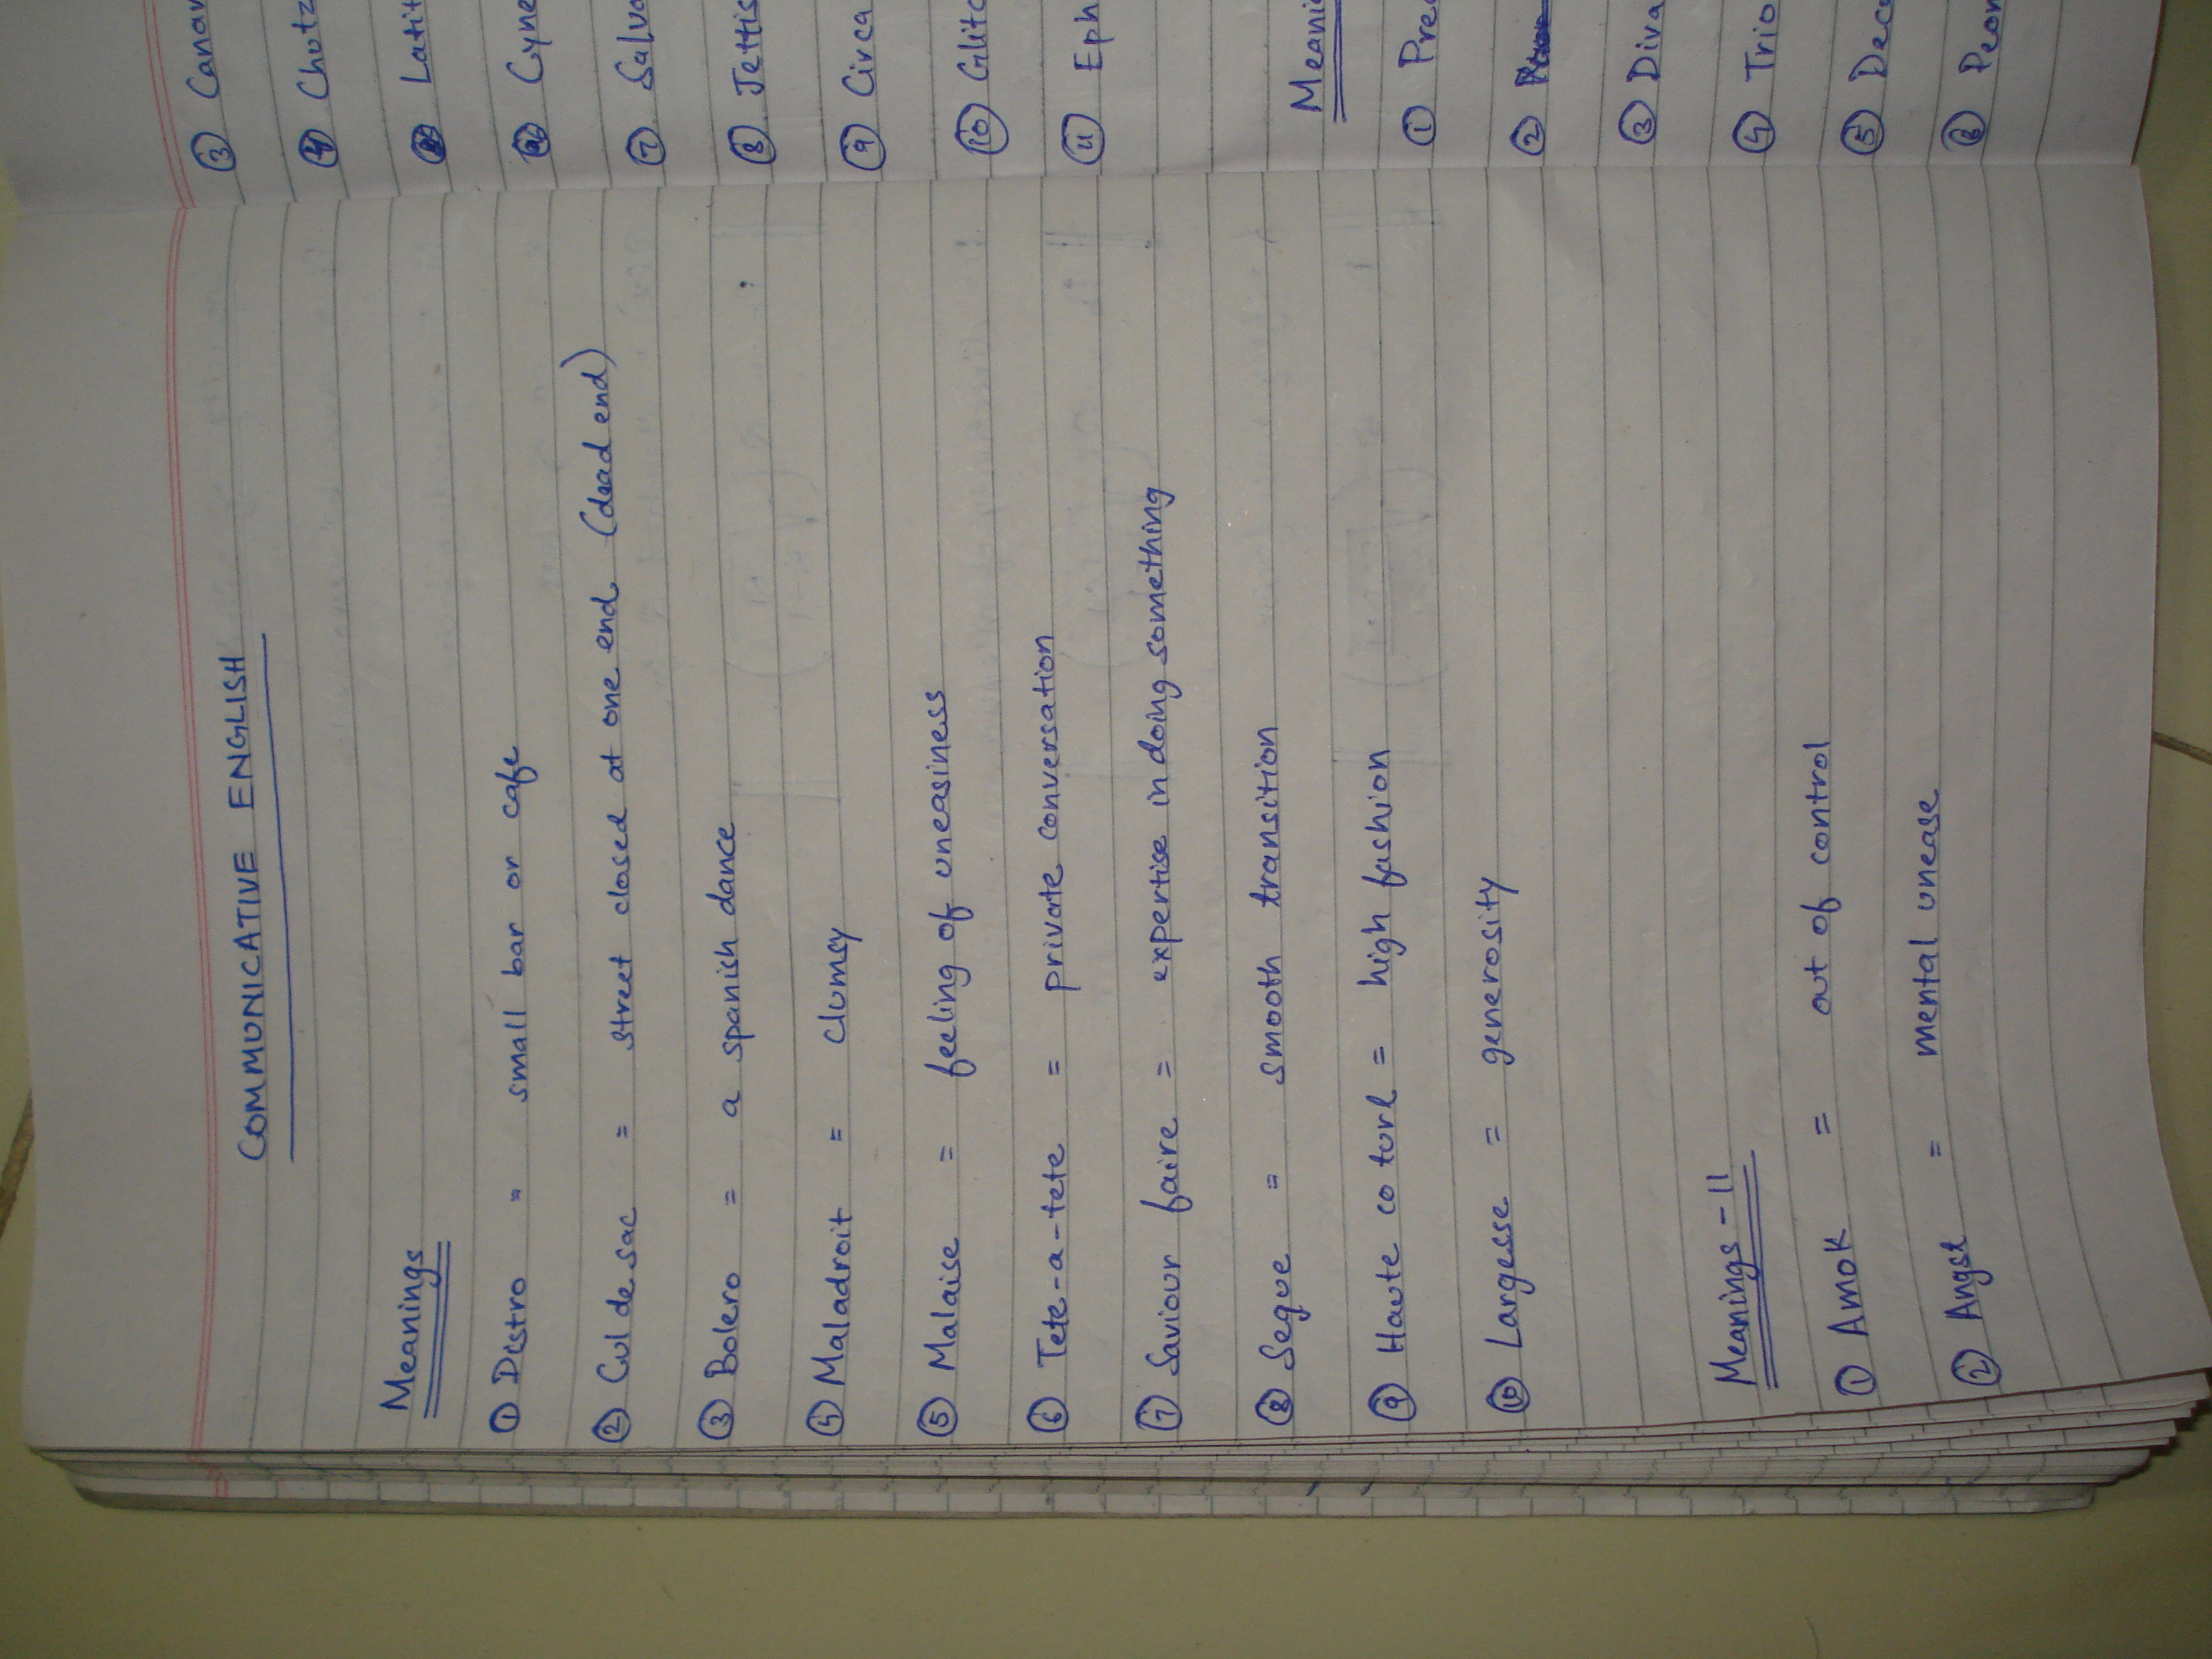 COMMUNICATIVE ENGLISH
Meanings
① Distro = small bar or cafe
② Cul de sac = street closed at one end (dead end)
③ Bolero = a spanish dance
④ Maladroit = clumsy
⑤ Malaise = feeling of uneasiness
⑥ Tete-a-tete = private conversation
⑦ Saviour faire = expertise in doing something
⑧ Segue = smooth transition
⑨ Haute coture = high fashion
⑩ Largesse = generosity
Meanings - II
① Amok = out of control
② Angst = mental unease
③ Canar
④ Chutz
Latit
⑥ Cyne
⑦ Salvo
⑧ Jettis
⑨ Circa
⑩ Glitc
⑪ Eph
Meani
① Prec
②
③ Diva
④ Trio
⑤ Deco
⑥ Peon